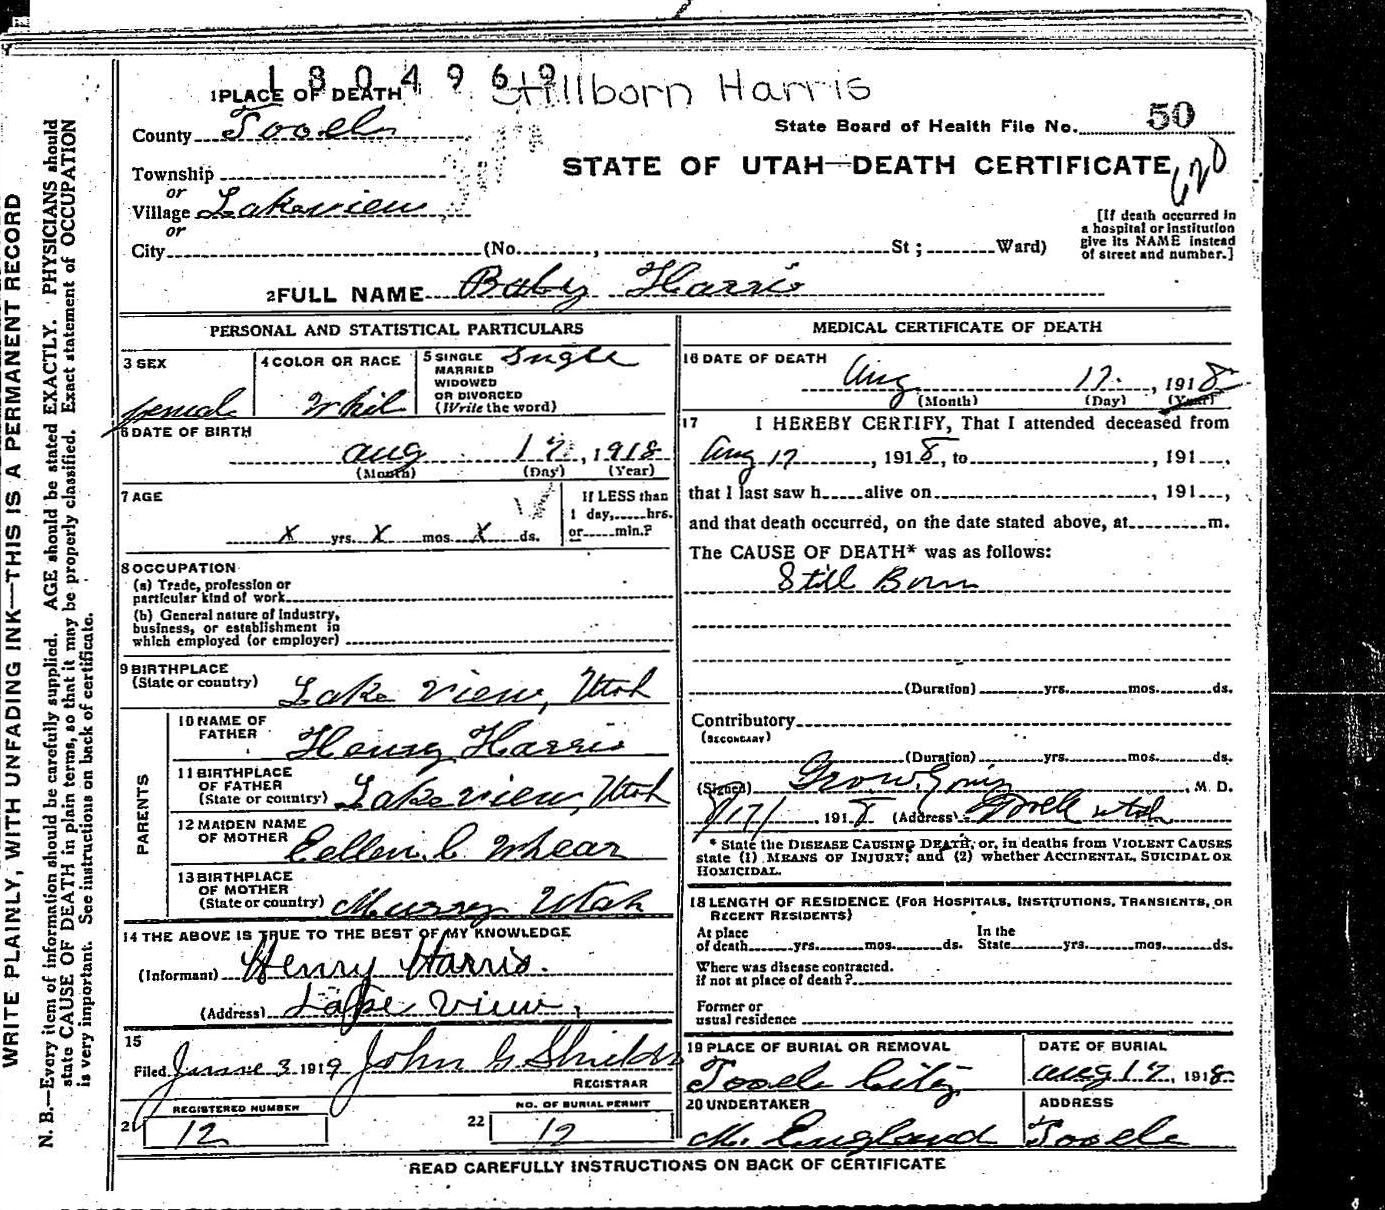 1804969 Stillborn Harris
1 PLACE OF DEATH
County Tooele
State Board of Health File No. 50
STATE OF UTAH—DEATH CERTIFICATE
620
Township
or
Village Lakeview
or
City (No. , St ; Ward)
[If death occurred in
a hospital or institution
give its NAME instead
of street and number.]
2 FULL NAME Baby Harris
PERSONAL AND STATISTICAL PARTICULARS
3 SEX
female
4 COLOR OR RACE
Whit
5 SINGLE
MARRIED
WIDOWED
OR DIVORCED
(Write the word)
Single
6 DATE OF BIRTH
Aug 17, 1918
(Month) (Day) (Year)
7 AGE
X yrs. X mos. X ds.
If LESS than
1 day, hrs.
or min.?
8 OCCUPATION
(a) Trade, profession or
particular kind of work
(b) General nature of Industry,
business, or establishment in
which employed (or employer)
9 BIRTHPLACE
(State or country) Lake View, Utah
PARENTS
10 NAME OF
FATHER Henry Harris
11 BIRTHPLACE
OF FATHER
(State or country) Lakeview, Utah
12 MAIDEN NAME
OF MOTHER Eellen C
13 BIRTHPLACE
OF MOTHER
(State or country) Murry Utah
14 THE ABOVE IS TRUE TO THE BEST OF MY KNOWLEDGE
(Informant) Henry Harris.
(Address) Lake View,
15
Filed June 3 1919 John G Shields
REGISTRAR
REGISTERED NUMBER
21 12
NO. OF BURIAL PERMIT
22 12
MEDICAL CERTIFICATE OF DEATH
16 DATE OF DEATH
Aug 17, 1918
(Month) (Day) (Year)
17 I HEREBY CERTIFY, That I attended deceased from
Aug 17, 1918, to , 191 ,
that I last saw h alive on , 191 ,
and that death occurred, on the date stated above, at m.
The CAUSE OF DEATH* was as follows:
Still Born
(Duration) yrs. mos. ds.
Contributory
(SECONDARY)
(Duration) yrs. mos. ds.
(Signed) , M. D.
8/17/, 1918 (Address) Tooele Utah
* State the DISEASE CAUSING DEATH, or, in deaths from VIOLENT CAUSES
state (1) MEANS OF INJURY; and (2) whether ACCIDENTAL, SUICIDAL OR
HOMICIDAL.
18 LENGTH OF RESIDENCE (FOR HOSPITALS, INSTITUTIONS, TRANSIENTS, OR
RECENT RESIDENTS)
At place
of death yrs. mos. ds.
In the
State yrs. mos. ds.
Where was disease contracted.
if not at place of death?
Former or
usual residence
19 PLACE OF BURIAL OR REMOVAL
Tooele City
DATE OF BURIAL
Aug 17, 1918
20 UNDERTAKER
M. England
ADDRESS
Tooele
READ CAREFULLY INSTRUCTIONS ON BACK OF CERTIFICATE
WRITE PLAINLY, WITH UNFADING INK—THIS IS A PERMANENT RECORD
N. B.—Every item of information should be carefully supplied. AGE should be stated EXACTLY. PHYSICIANS should
state CAUSE OF DEATH in plain terms, so that it may be properly classified. Exact statement of OCCUPATION
is very important. See instructions on back of certificate.